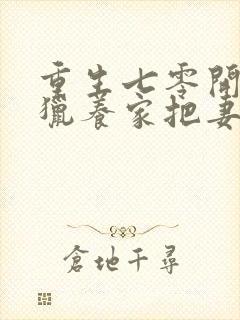 重生七零開
獵養家把妻
倉地千尋